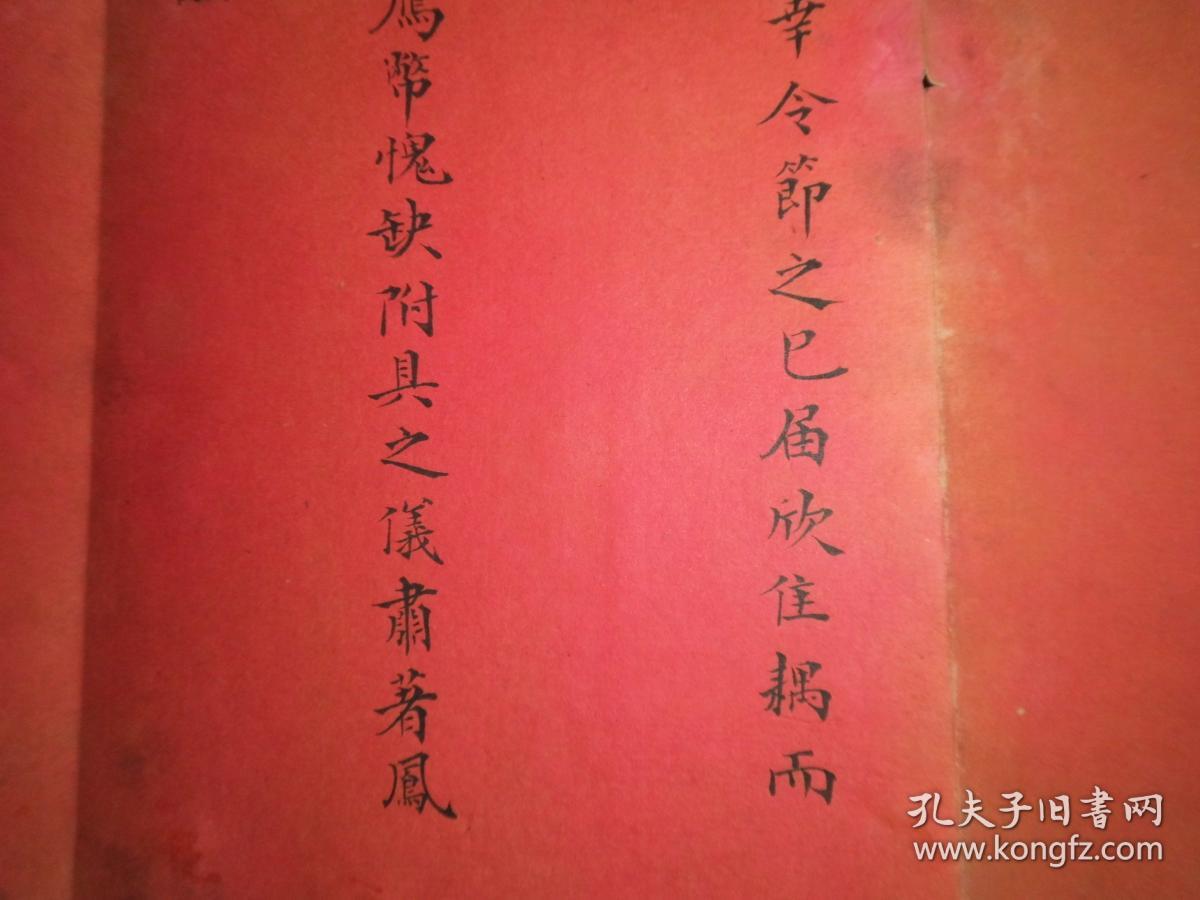 幸令節之已届欣佳耦而
幣愧缺附具之儀肅著鳳
孔夫子旧书网
www.kongfz.com